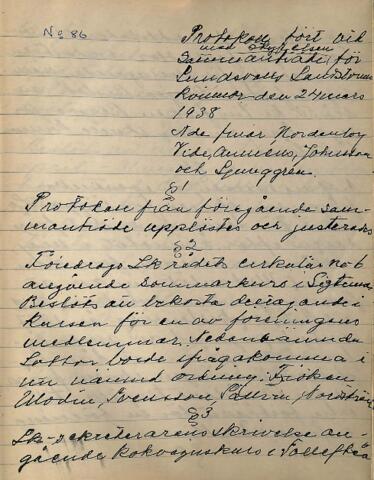 No 86
Protokoll fört vid
med styrelsen
sammanträde för
Sundsvalls Landstorms
kvinnor den 24 mars
1938
Nde fruar Nordenboy
Vide, Annéus, Johnson
och Ljunggren.
§ 1
Protokoll från föregående sam-
manträde upplästes och justerades
§ 2
Föredrogs Lk rådets cirkulär no 6
angående sommarkurs i Sigtuna
Beslöts att bekosta deltagande i
kursen för en av föreningens
medlemmar. Nedannämnda
Lottor borde ifrågakomma i
nu nämnd ordning: Fröken
Modin, Svensson, Nordström
§ 3
Lk-sekreterarens skrivelse an-
gående kokvagnskurs i Sollefteå